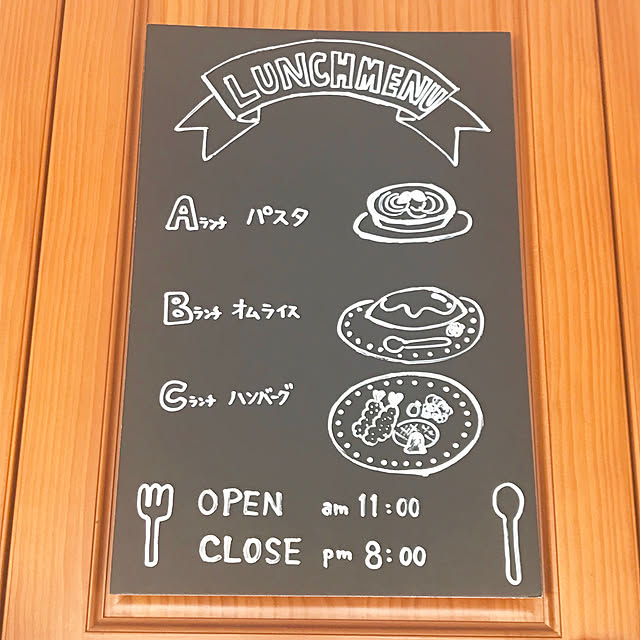 LUNCHMENU
Aランチ パスタ
Bランチ オムライス
Cランチ ハンバーグ
OPEN am 11:00
CLOSE pm 8:00